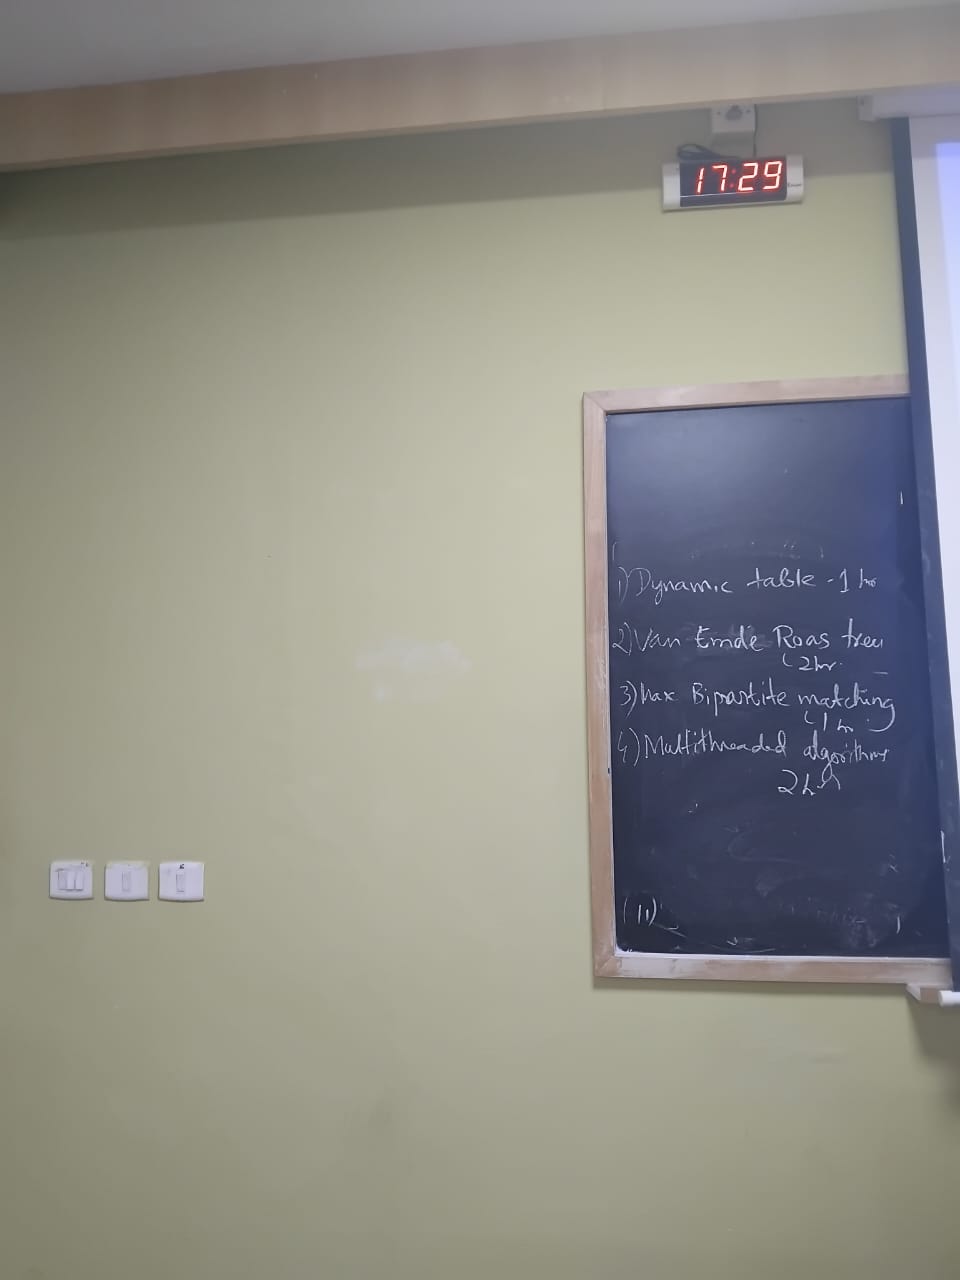 17:29
1) Dynamic table - 1 hr
2) Van Emde Roas tree
↳ 2hr.
3) Max Bipartite matching
↳ 1 hr
4) Multithreaded algorithms
2 hr
(11)